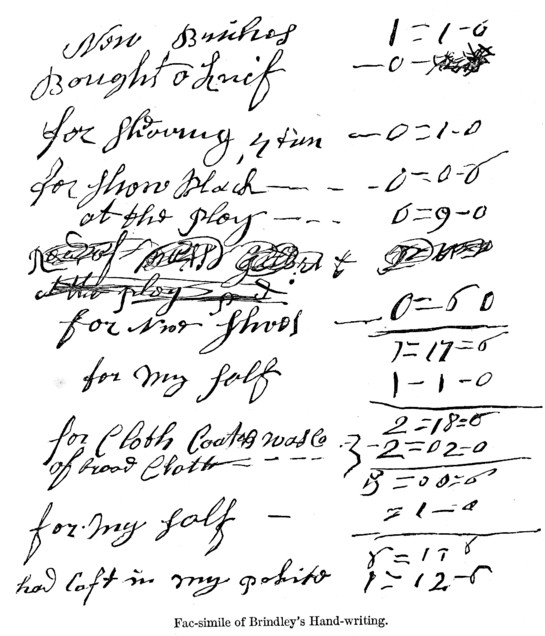 New Briches 1=1-0
Bought o Knif —0—
for Shoving 4 tim —0=1-0
for Show Black — — - - 0=0-6
at the Ploy — - - 0=9-0
at the ploy
for New Shoos — 0=6 0
1=17=6
for my Self 1-1-0
2=18=6
for Cloth Coat & wasco
of broad Cloth - 2=02=0
5=00=6
for my Self — =1-0
had in my pokito 1=12-6
Fac-simile of Brindley's Hand-writing.